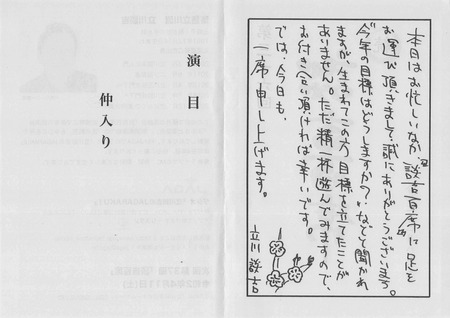 本日はお忙しいなか談吉百席に足を
お運び頂きまして誠にありがとうございます。
今年の目標はどうしますか？などと聞かれ
ますが、生まれてこの方目標を立てたことが
ありません。ただ精一杯遊んでみますので、
お付き合い頂ければ幸いです。
では、今日も、
一席申し上げます。
立川談吉
演目
仲入り